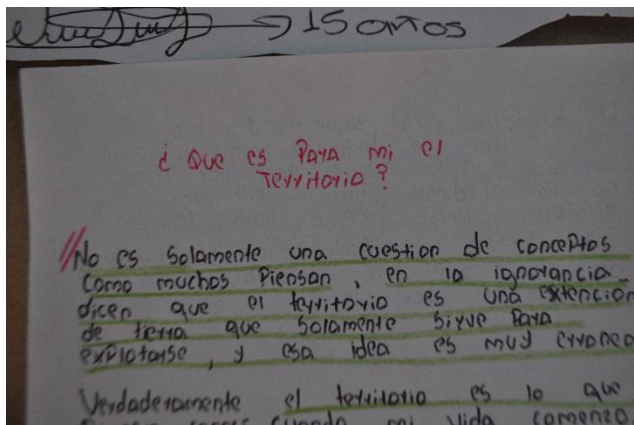 → 15 años
¿ Que es Para mi el
Territorio ?
No es solamente una cuestion de conceptos
como muchos Piensan , en la ignorancia
dicen que el territorio es una extencion
de tierra que solamente sirve Para
explotarse , y esa idea es muy erronea
Verdaderamente el territorio es lo que
cuando mi vida comenzo